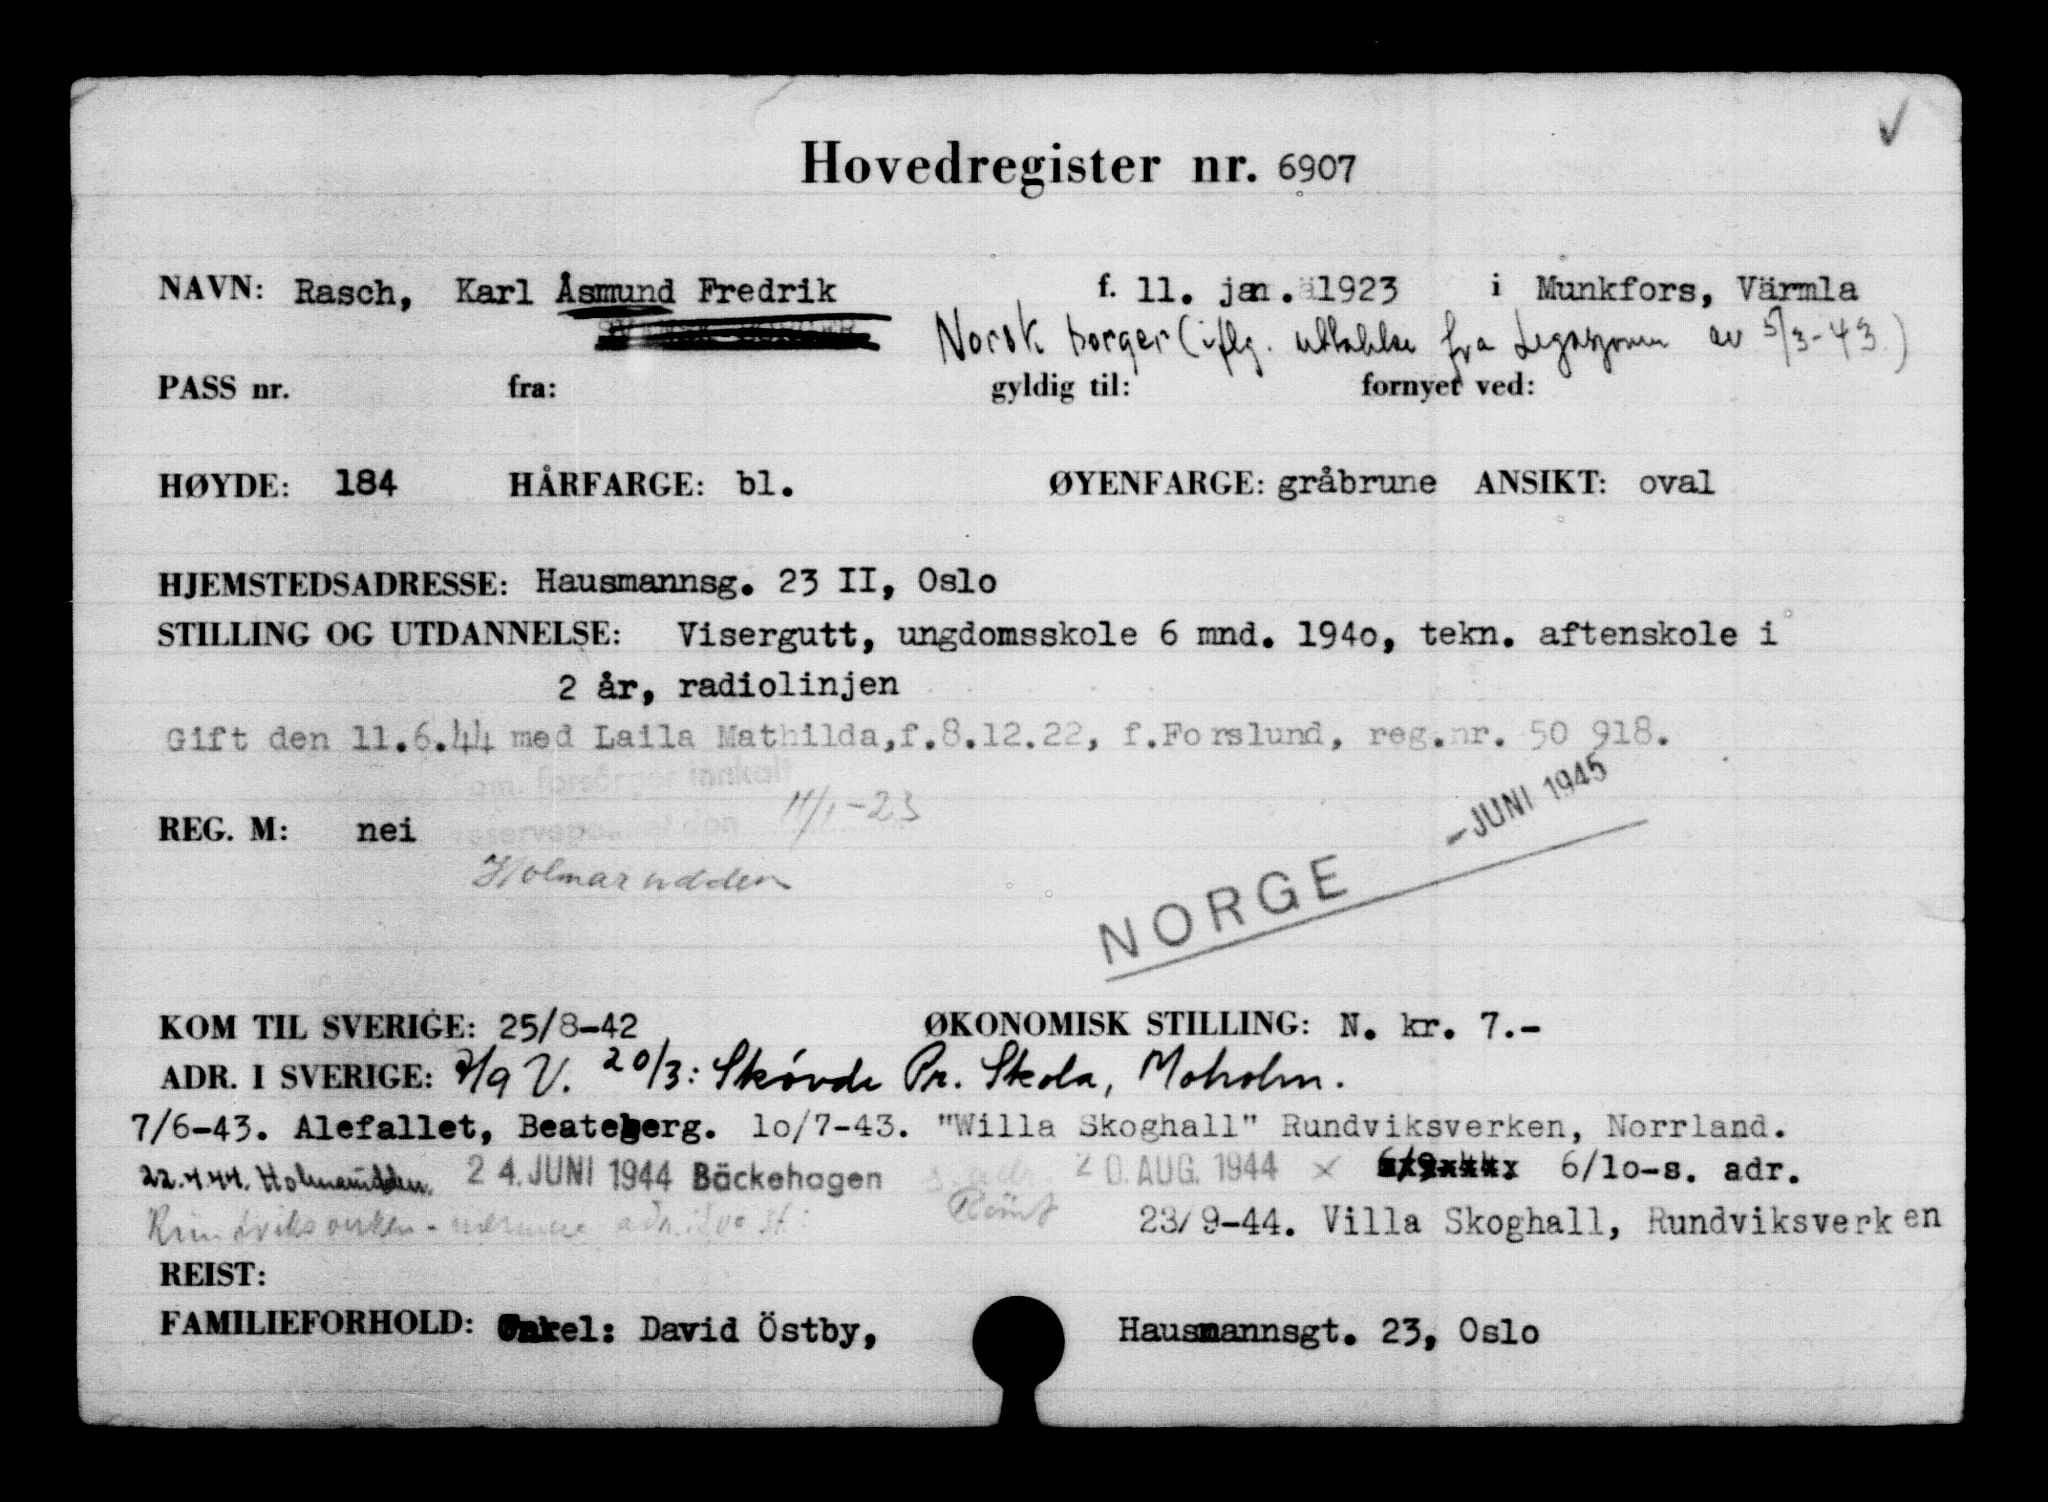 Hovedregister nr. 6907
NAVN: Rasch, Karl Åsmund Fredrik f. 11. jan. 1923 i Munkfors, Värmla
Norsk borger (iflg. uttalelse fra Legasjonen av 5/3-43)
PASS nr. fra: gyldig til: fornyet ved:
HØYDE: 184 HÅRFARGE: bl. ØYENFARGE: gråbrune ANSIKT: oval
HJEMSTEDSADRESSE: Hausmannsg. 23 II, Oslo
STILLING OG UTDANNELSE: Visergutt, ungdomsskole 6 mnd. 194o, tekn. aftenskole i
2 år, radiolinjen
Gift den 11.6.44 med Laila Mathilda,f.8.12.22, f.Forslund, reg.nr. 50 918.
innkalt
11/1-23
-JUNI 1945
REG. M: nei
Holmarudden
NORGE
KOM TIL SVERIGE: 25/8-42 ØKONOMISK STILLING: N. kr. 7.-
ADR. I SVERIGE: 7/9 V. 20/3: Skövde Pr. Skola, Moholm.
7/6-43. Alefallet, Beateberg. lo/7-43. "Willa Skoghall" Rundviksverken, Norrland.
22.4.44. Holmarudden. 24. JUNI 1944 Bäckehagen 20. AUG. 1944 x 6/lo-s. adr.
Rundviksverken - nærmere adr.
Rømt
23/9-44. Villa Skoghall, Rundviksverken
REIST:
FAMILIEFORHOLD: Onkel: David Östby, Hausmannsgt. 23, Oslo